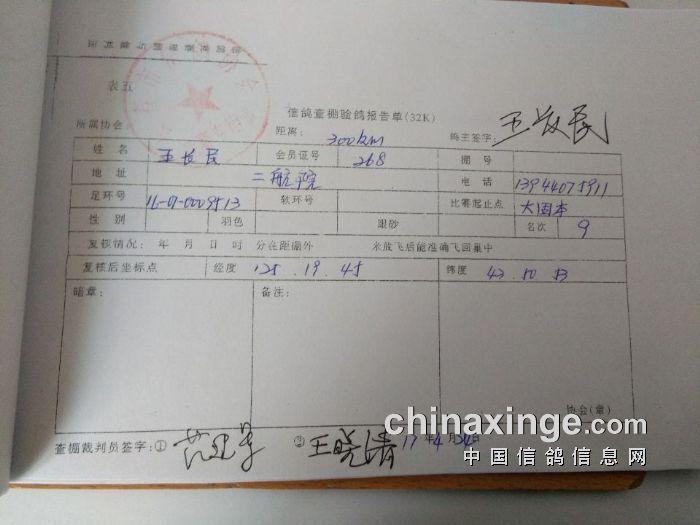 表五
信鸽查棚验鸽报告单(32K)
所属协会: 距离: 300km 鸽主签字: 王长民
姓名 王长民 会员证号 268 棚号
地址 二航院 电话 13944075911
足环号 16-07-0009513 软环号 比赛起止点 大固本
性别 羽色 眼砂 名次 9
复核情况: 年 月 日 时 分在距棚外 米放飞后能准确飞回巢中
复核后坐标点 经度 125.19.45 纬度 43.50.53
暗章: 备注:
协会(章)
查棚裁判员签字:① ② 王晓清 17年4月24日
chinaxinge.com
中国信鸽信息网